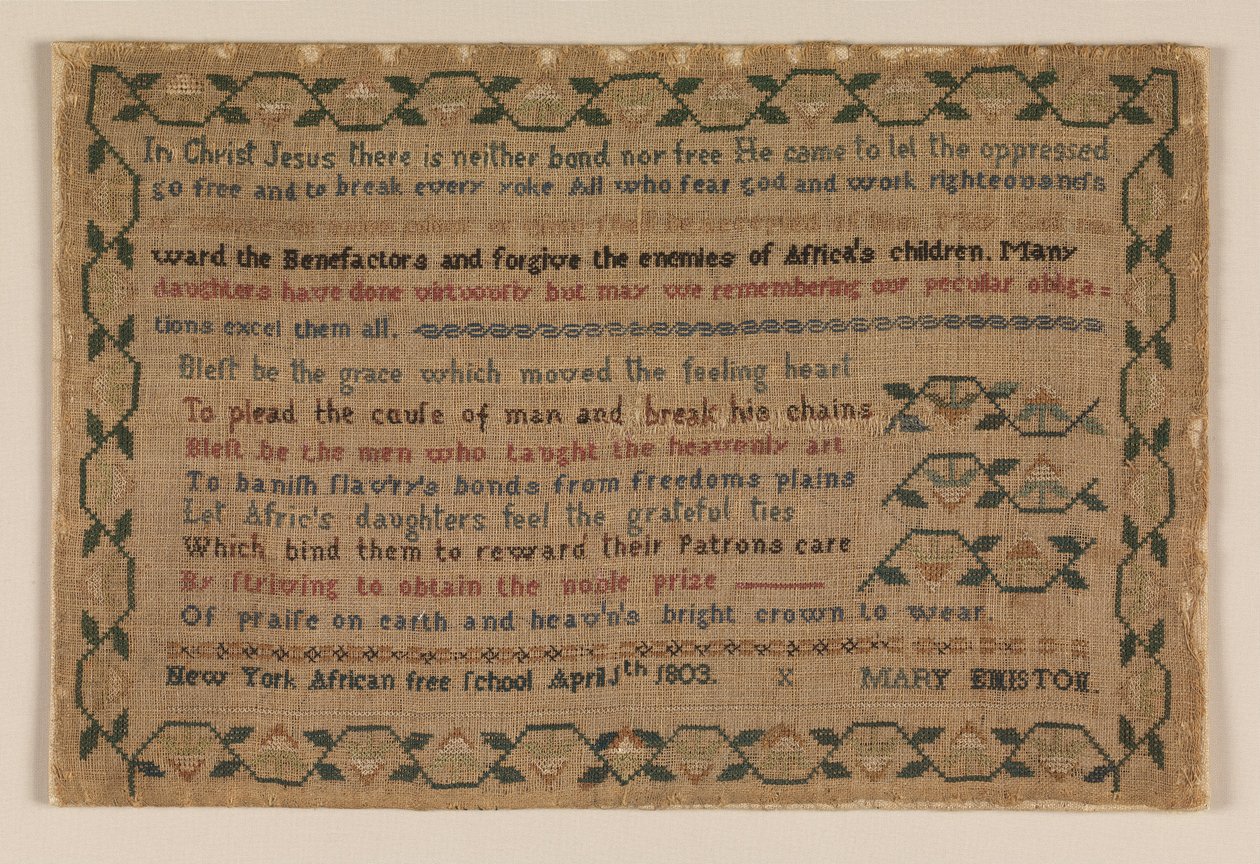 In Christ Jesus there is neither bond nor free He came to let the oppressed
go free and to break every yoke All who fear god and work righteousneſs
be accepted of him May God re
ward the Benefactors and forgive the enemies of Africa's children. Many
daughters have done virtuouſly but may we remembering our peculiar obliga=
tions excel them all.
Bleſt be the grace which moved the feeling heart
To plead the cauſe of man and break his chains
Bleſt be the men who taught the heavenly art
To baniſh ſlav'ry's bonds from freedoms plains
Let Afric's daughters feel the grateful ties
Which bind them to reward their Patrons care
By ſtriving to obtain the noble prize
Of praiſe on earth and heav'n's bright crown to wear.
New York African free ſchool April 1th 1803. X MARY EMISTON.